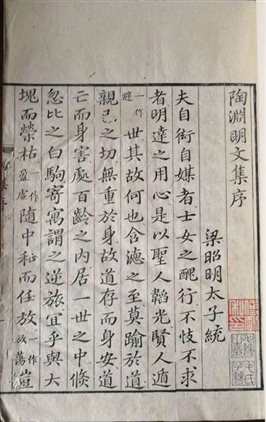 陶淵明文集序
梁昭明太子統
夫自衒自媒者士女之醜行不忮不求
者明達之用心是以聖人韜光賢人遁
一作避世其故何也含德之至莫踰於道
親己之切無重於身故道存而身安道
亡而身害處百齡之內居一世之中倏
忽比之白駒寄寓謂之逆旅宜乎與大
塊而榮枯一作盈虛隨中和而任放一作放蕩豈